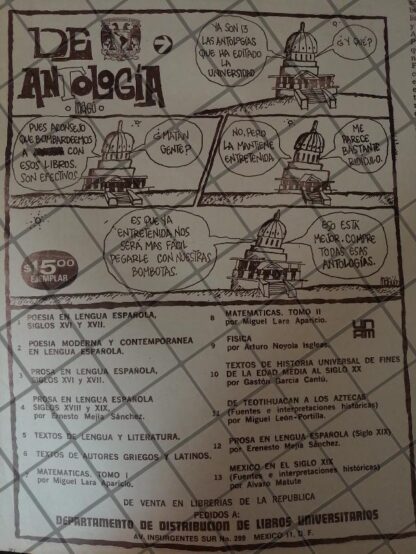 DE
ANTOLOGÍA
YA SON 13
LAS ANTOLOGÍAS
QUE HA EDITADO
LA
UNIVERSIDAD
¿Y QUÉ?
PUES ACONSEJO
QUE BOMBARDEEMOS
A CON
ESOS LIBROS.
SON EFECTIVOS
¿MATAN
GENTE?
NO, PERO
LA MANTIENE
ENTRETENIDA
ME
PARECE
BASTANTE
RIDÍCULO.
ES QUE YA
ENTRETENIDA, NOS
SERA MAS FACIL
PEGARLE CON NUESTRAS
BOMBOTAS.
ESO ESTÁ
MEJOR. COMPRE
TODAS ESAS
ANTOLOGÍAS.
$15.00
EJEMPLAR
1 POESIA EN LENGUA ESPAÑOLA,
SIGLOS XVI Y XVII.
2 POESIA MODERNA Y CONTEMPORANEA
EN LENGUA ESPAÑOLA.
3 PROSA EN LENGUA ESPAÑOLA,
SIGLOS XVI Y XVII.
PROSA EN LENGUA ESPAÑOLA
4 SIGLOS XVIII Y XIX,
por Ernesto Mejía Sánchez.
5 TEXTOS DE LENGUA Y LITERATURA.
6 TEXTOS DE AUTORES GRIEGOS Y LATINOS.
MATEMATICAS, TOMO I
por Miguel Lara Aparicio.
8 MATEMATICAS, TOMO II
por Miguel Lara Aparicio.
UNAM
9 FISICA
por Arturo Noyola Isgleas.
TEXTOS DE HISTORIA UNIVERSAL DE FINES
10 DE LA EDAD MEDIA AL SIGLO XX
por Gastón García Cantú.
DE TEOTIHUACAN A LOS AZTECAS
11 (Fuentes e interpretaciones históricas)
por Miguel León-Portilla.
12 PROSA EN LENGUA ESPAÑOLA (Siglo XIX)
por Ernesto Mejía Sánchez.
MEXICO EN EL SIGLO XIX
13 (Fuentes e interpretaciones históricas)
por Alvaro Matute
DE VENTA EN LIBRERIAS DE LA REPUBLICA
PEDIDOS A:
DEPARTAMENTO DE DISTRIBUCION DE LIBROS UNIVERSITARIOS
AV. INSURGENTES SUR No. 299 MEXICO 11, D. F.